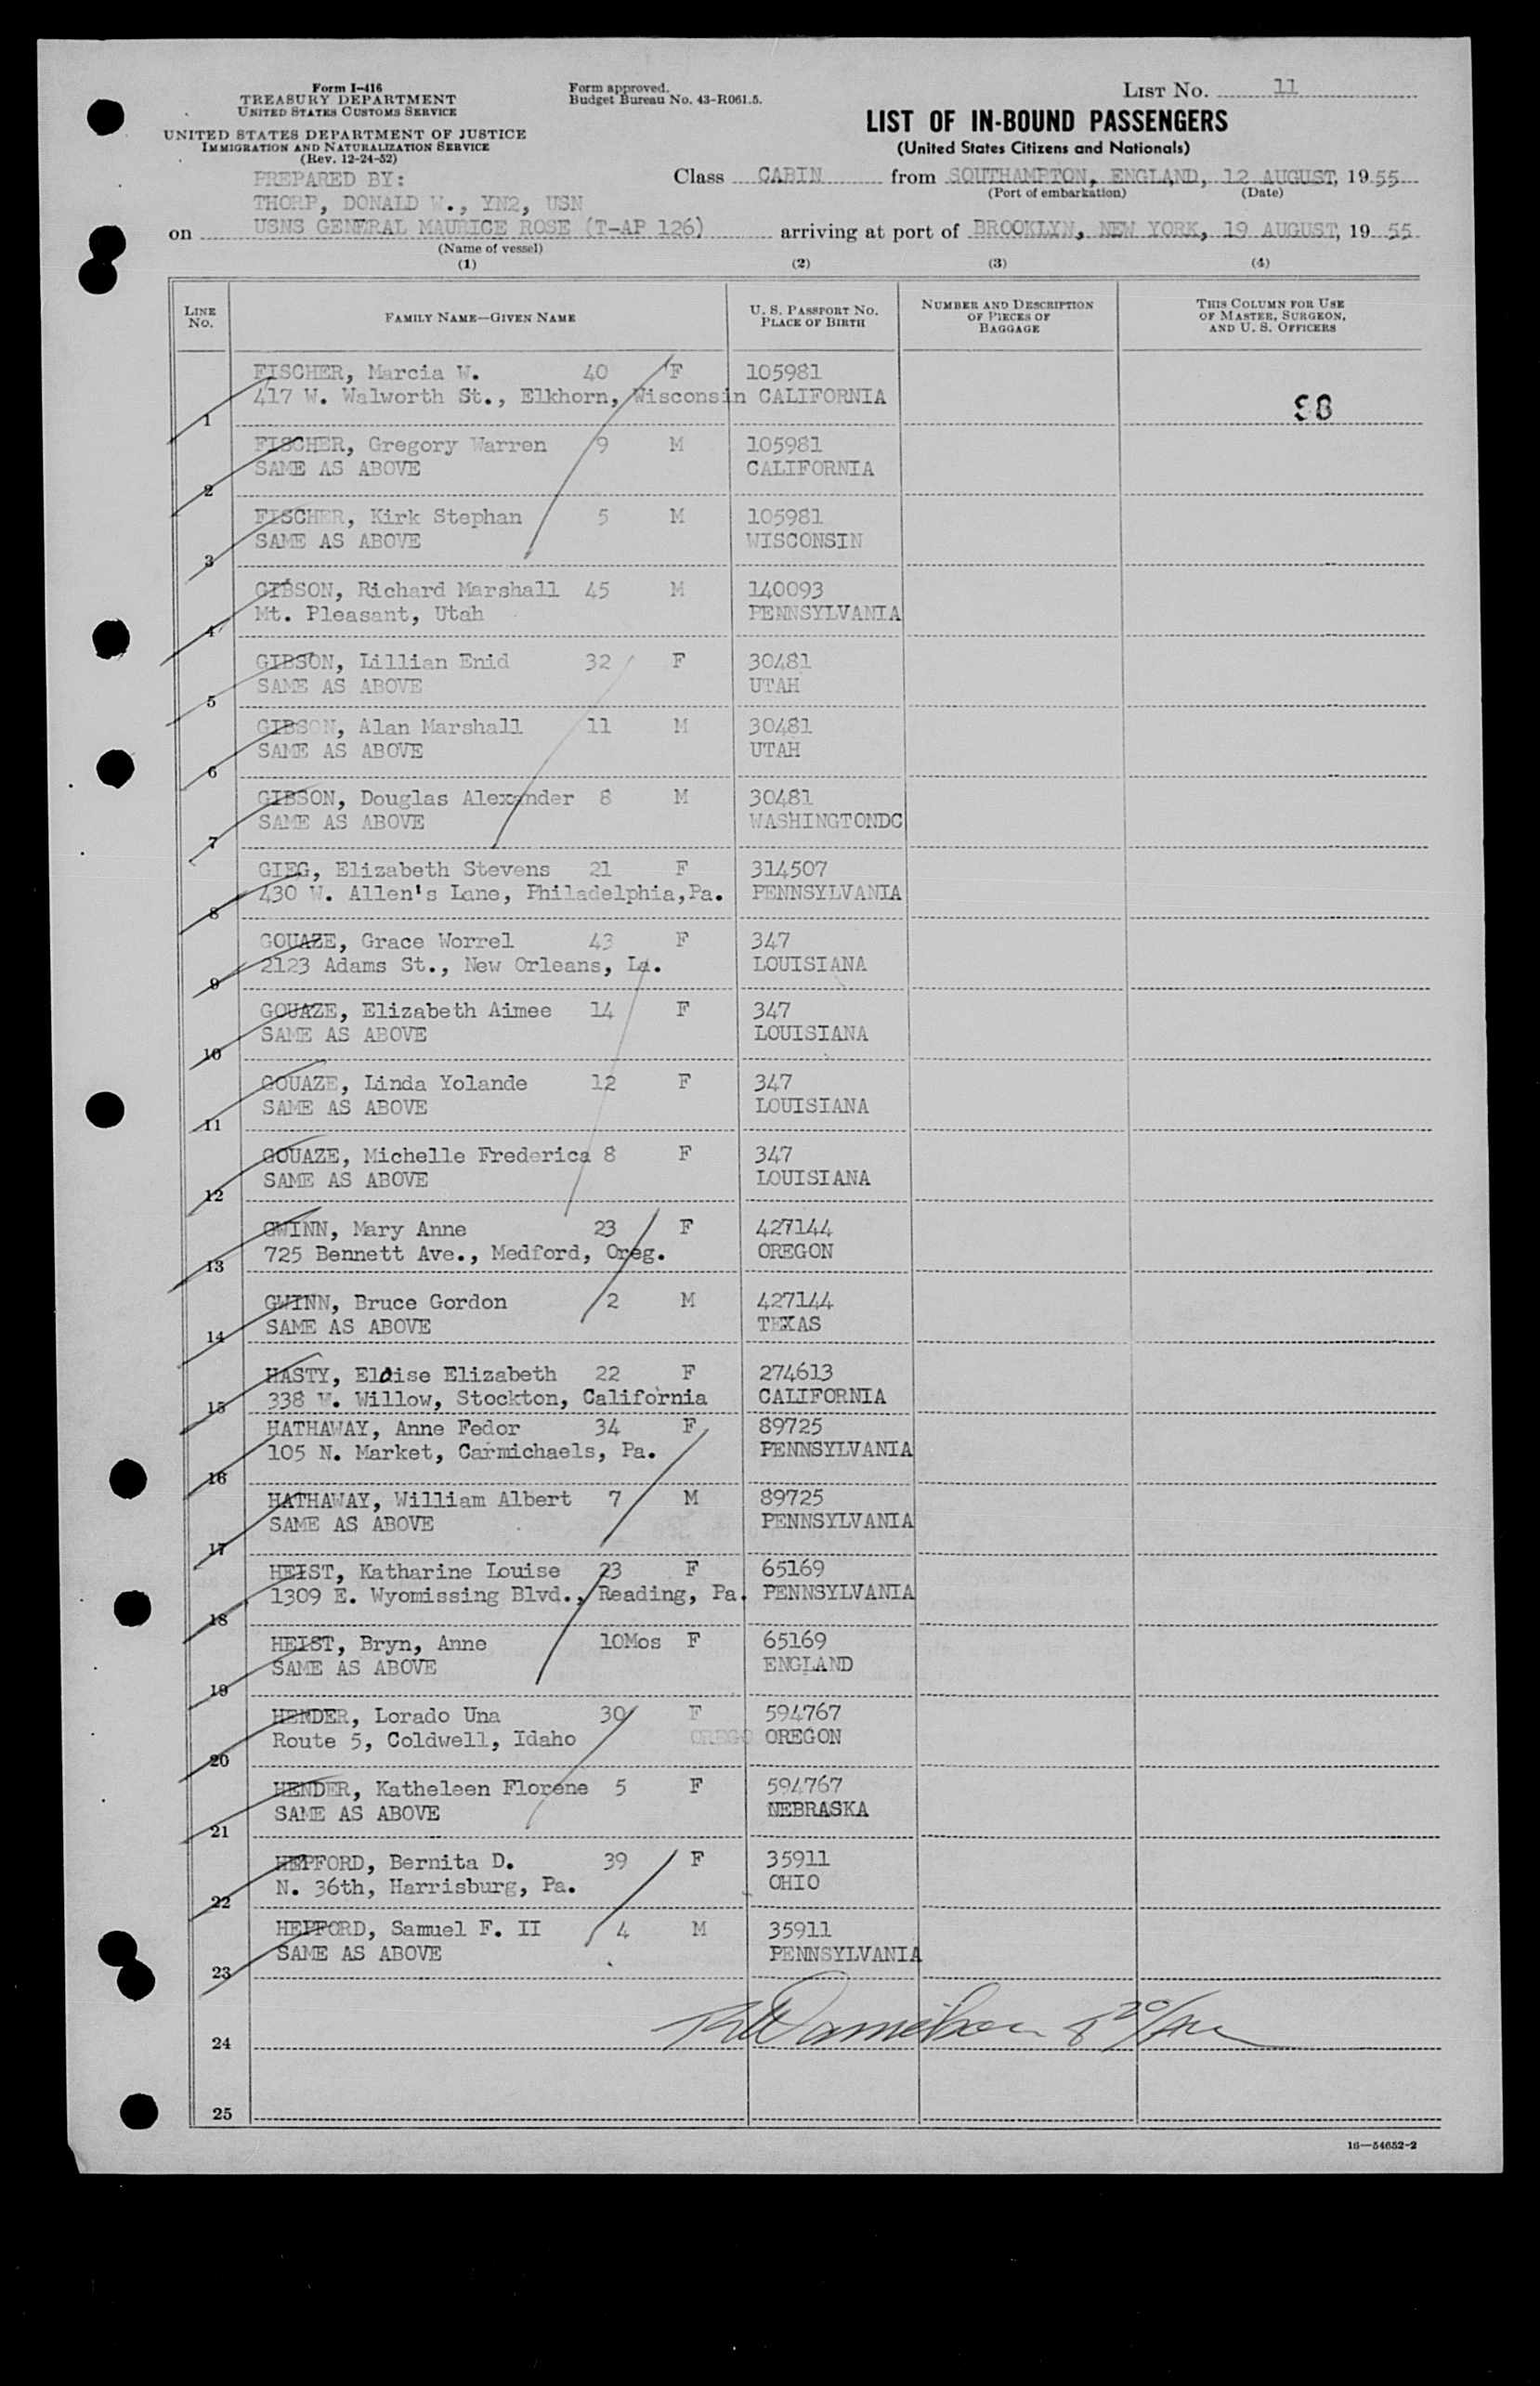 Form I-416
TREASURY DEPARTMENT
UNITED STATES CUSTOMS SERVICE
UNITED STATES DEPARTMENT OF JUSTICE
IMMIGRATION AND NATURALIZATION SERVICE
(Rev. 12-24-52)
Form approved.
Budget Bureau No. 43-R061.5.
LIST NO. 11
LIST OF IN-BOUND PASSENGERS
(United States Citizens and Nationals)
PREPARED BY:
THORP, DONALD W., YN2, USN
Class CABIN from SOUTHAMPTON, ENGLAND, 12 AUGUST, 1955
(Port of embarkation) (Date)
on USNS GENERAL MAURICE ROSE (T-AP 126) arriving at port of BROOKLYN, NEW YORK, 19 AUGUST, 1955
(Name of vessel)
(1) (2) (3) (4)
LINE NO. FAMILY NAME—GIVEN NAME U. S. PASSPORT NO. PLACE OF BIRTH NUMBER AND DESCRIPTION OF PIECES OF BAGGAGE THIS COLUMN FOR USE OF MASTER, SURGEON, AND U. S. OFFICERS
FISCHER, Marcia W. 40 F 105981
1 417 W. Walworth St., Elkhorn, Wisconsin CALIFORNIA 98
FISCHER, Gregory Warren 9 M 105981
2 SAME AS ABOVE CALIFORNIA
FISCHER, Kirk Stephan 5 M 105981
3 SAME AS ABOVE WISCONSIN
GIBSON, Richard Marshall 45 M 140093
4 Mt. Pleasant, Utah PENNSYLVANIA
GIBSON, Lillian Enid 32 F 30481
5 SAME AS ABOVE UTAH
GIBSON, Alan Marshall 11 M 30481
6 SAME AS ABOVE UTAH
GIBSON, Douglas Alexander 8 M 30481
7 SAME AS ABOVE WASHINGTONDC
GIEG, Elizabeth Stevens 21 F 314507
8 430 W. Allen's Lane, Philadelphia,Pa. PENNSYLVANIA
GOUAZE, Grace Worrel 43 F 347
9 2123 Adams St., New Orleans, La. LOUISIANA
GOUAZE, Elizabeth Aimee 14 F 347
10 SAME AS ABOVE LOUISIANA
GOUAZE, Linda Yolande 12 F 347
11 SAME AS ABOVE LOUISIANA
GOUAZE, Michelle Frederica 8 F 347
12 SAME AS ABOVE LOUISIANA
GWINN, Mary Anne 23 F 427144
13 725 Bennett Ave., Medford, Oreg. OREGON
GWINN, Bruce Gordon 2 M 427144
14 SAME AS ABOVE TEXAS
HASTY, Eloise Elizabeth 22 F 274613
15 338 W. Willow, Stockton, California CALIFORNIA
HATHAWAY, Anne Fedor 34 F 89725
16 105 N. Market, Carmichaels, Pa. PENNSYLVANIA
HATHAWAY, William Albert 7 M 89725
17 SAME AS ABOVE PENNSYLVANIA
HEIST, Katharine Louise 23 F 65169
18 1309 E. Wyomissing Blvd., Reading, Pa. PENNSYLVANIA
HEIST, Bryn, Anne 10Mos F 65169
19 SAME AS ABOVE ENGLAND
HENDER, Lorado Una 30 F 594767
20 Route 5, Coldwell, Idaho OREGO OREGON
HENDER, Katheleen Florene 5 F 594767
21 SAME AS ABOVE NEBRASKA
HEPFORD, Bernita D. 39 F 35911
22 N. 36th, Harrisburg, Pa. OHIO
HEPFORD, Samuel F. II 4 M 35911
23 SAME AS ABOVE PENNSYLVANIA
24
25
16—54652-2